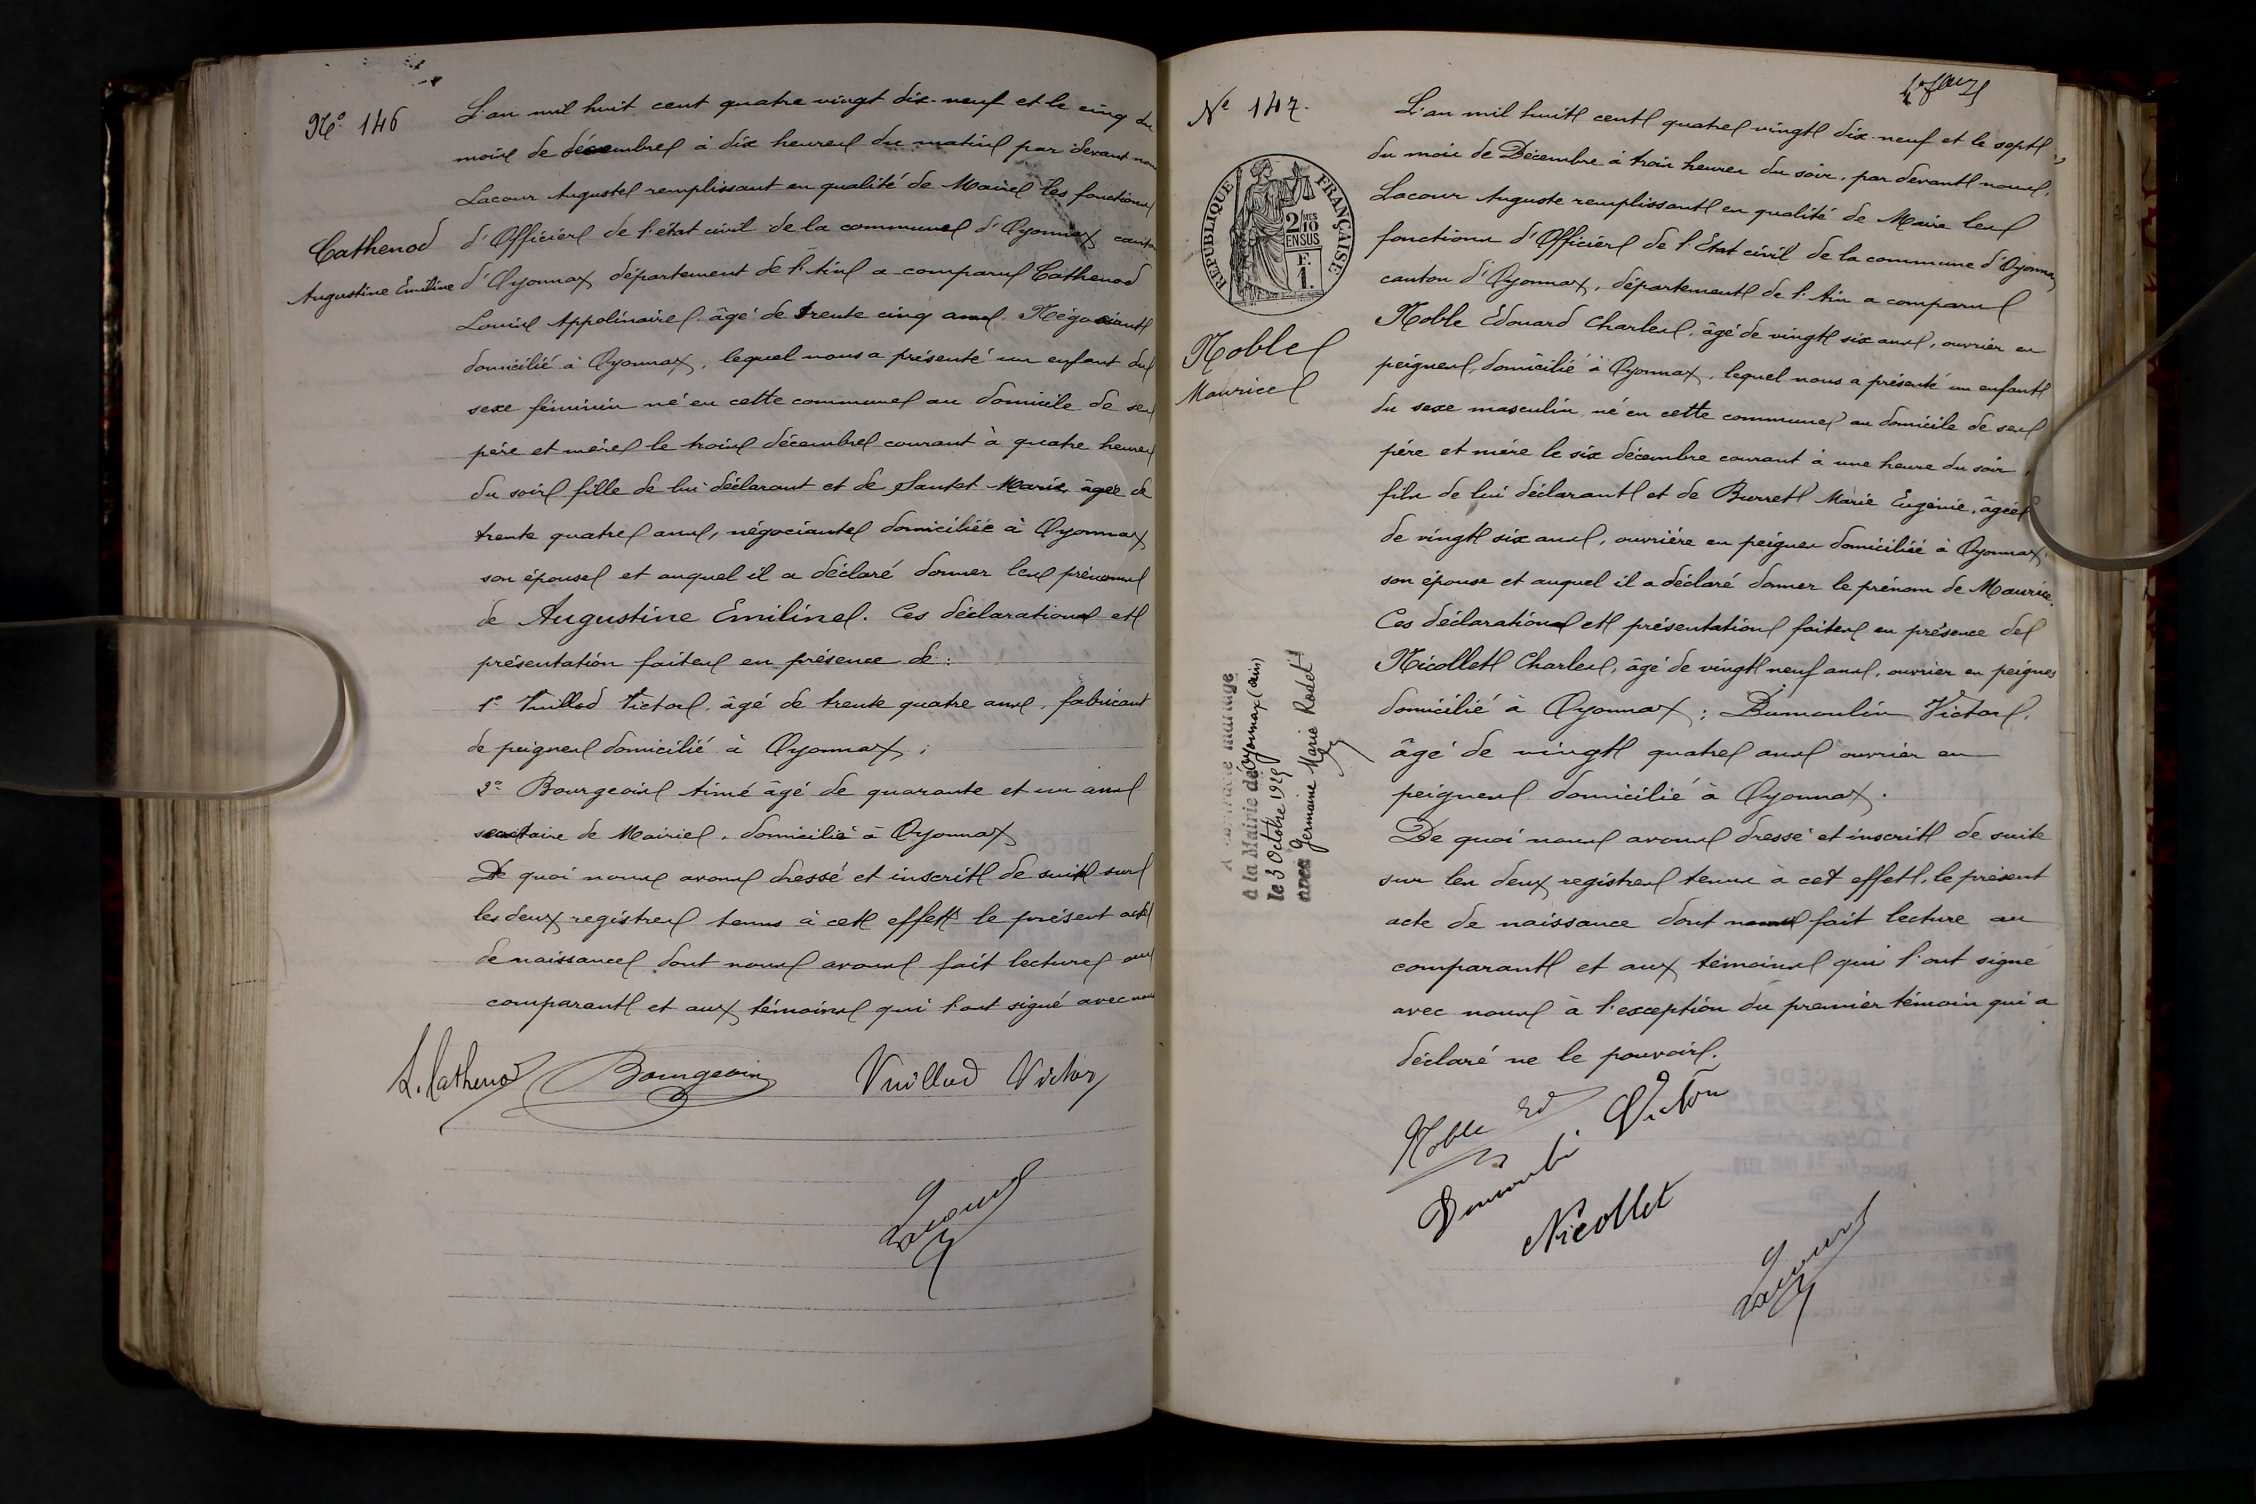 Nº 146
Cathenod
Augustine Emiline
L'an mil huit cent quatre vingt dix-neuf et le cinq du
mois de décembre à dix heures du matin par devant nous
Lacour Auguste remplissant en qualité de Maire les fonctions
d'Officier de l'état civil de la commune d'Oyonnax canton
d'Oyonnax département de l'Ain a comparu Cathenod
Louis Appolinaire âgé de trente cinq ans. Négociant
domicilié à Oyonnax, lequel nous a présenté un enfant du
sexe féminin né en cette commune au domicile de ses
père et mère le trois décembre courant à quatre heures
du soir fille de lui déclarant et de Marie, âgée de
trente quatre ans, négociante domiciliée à Oyonnax
son épouse et auquel il a déclaré donner les prénoms
de Augustine Emiline. Ces déclarations et
présentation faites en présence de :
1º Vuillod Victor, âgé de trente quatre ans, fabricant
de peignes domicilié à Oyonnax ;
2º Bourgeois Aimé âgé de quarante et un ans
secrétaire de Mairie, domicilié à Oyonnax
De quoi nous avons dressé et inscrit de suite sur
les deux registres tenus à cet effet le présent acte
de naissance dont nous avons fait lecture au
comparant et aux témoins qui l'ont signé avec nous
L. Cathenod Bourgeois Vuillod Victor
Lacour
Nº 147.
REPUBLIQUE FRANÇAISE
2/10MES
EN SUS
F.
1.
Noble
Maurice
à la Mairie de Oyonnax (ain)
le 3 Octobre 1925
avec Germaine Marie Rodet
L'an mil huit cent quatre vingt dix-neuf et le sept
du mois de Décembre à trois heures du soir, par devant nous,
Lacour Auguste remplissant en qualité de Maire les
fonctions d'Officier de l'Etat civil de la commune d'Oyonnax
canton d'Oyonnax, département de l'Ain a comparu
Noble Edouard Charles, âgé de vingt six ans, ouvrier en
peignes, domicilié à Oyonnax, lequel nous a présenté un enfant
du sexe masculin, né en cette commune au domicile de ses
père et mère le six décembre courant à une heure du soir,
fils de lui déclarant et de Burret Marie Eugénie, âgée
de vingt six ans, ouvrière en peignes domiciliée à Oyonnax,
son épouse et auquel il a déclaré donner le prénom de Maurice.
Ces déclarations et présentation faites en présence de
Nicollet Charles, âgé de vingt neuf ans, ouvrier en peignes
domicilié à Oyonnax ; Dumoulin Victor,
âgé de vingt quatre ans ouvrier en
peignes domicilié à Oyonnax.
De quoi nous avons dressé et inscrit de suite
sur les deux registres tenus à cet effet, le présent
acte de naissance dont nous fait lecture au
comparant et aux témoins qui l'ont signé
avec nous à l'exception du premier témoin qui a
déclaré ne le pouvoir.
Noble Ed
Dumoulin Victor
Nicollet
Lacour